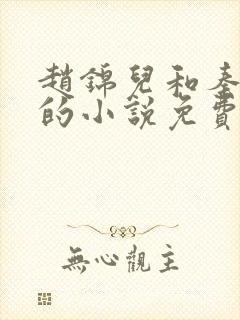 趙錦兒和秦
的小說免費
無心觀主